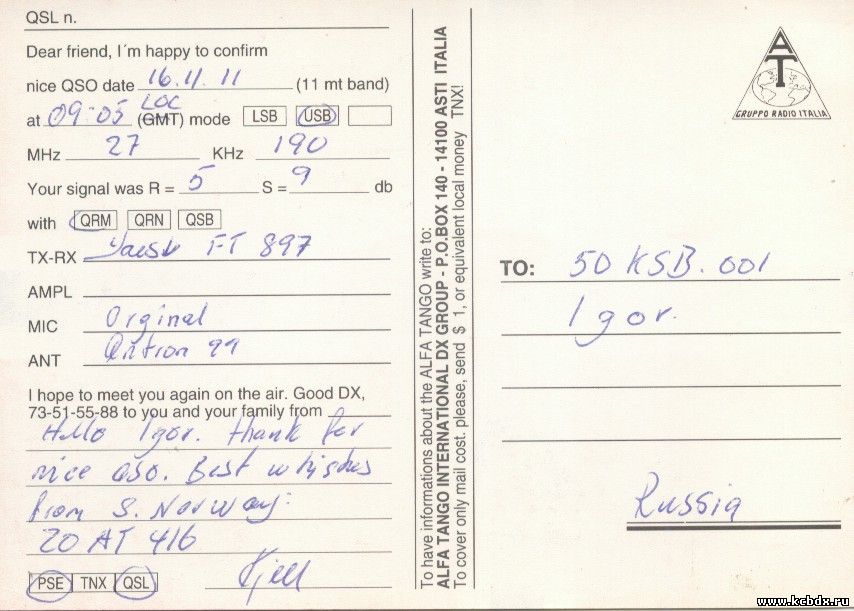 QSL n.
Dear friend, I´m happy to confirm
nice QSO date 16.11.11 (11 mt band)
LOC
at 09:05 (GMT) mode LSB USB
MHz 27 KHz 190
Your signal was R = 5 S = 9 db
with QRM QRN QSB
TX-RX Yaesu FT 897
AMPL
MIC Orginal
ANT Antron 99
I hope to meet you again on the air. Good DX,
73-51-55-88 to you and your family from
Hello Igor. Thank for
nice QSO. Best whishes
from S. Norway:
20 AT 416
PSE TNX QSL Kjell
To have informations about the ALFA TANGO write to:
ALFA TANGO INTERNATIONAL DX GROUP - P.O.BOX 140 - 14100 ASTI ITALIA
To cover only mail cost. please, send $ 1, or equivalent local money TNX!
AT
GRUPPO RADIO ITALIA
TO: 50 KSB. 001
Igor.
Russia
www.kcbdx.ru